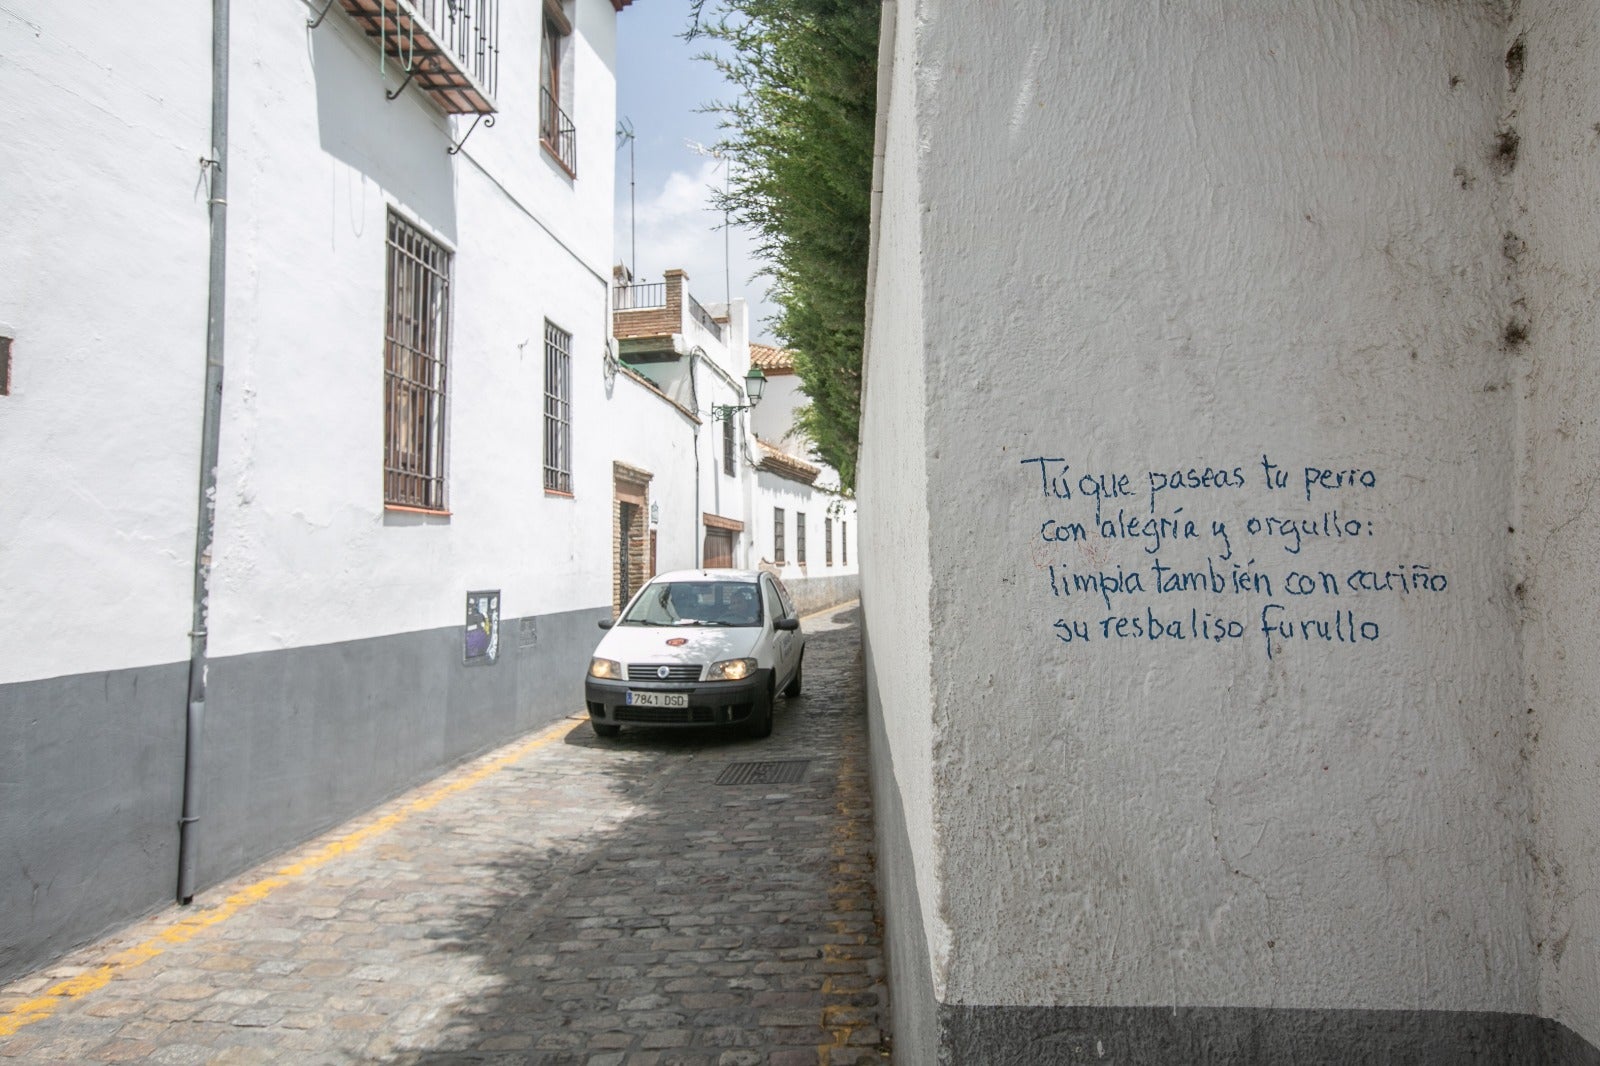 Tú que paseas tu perro
con alegría y orgullo:
limpia también con cariño
su resbaliso furullo
7841 DSD